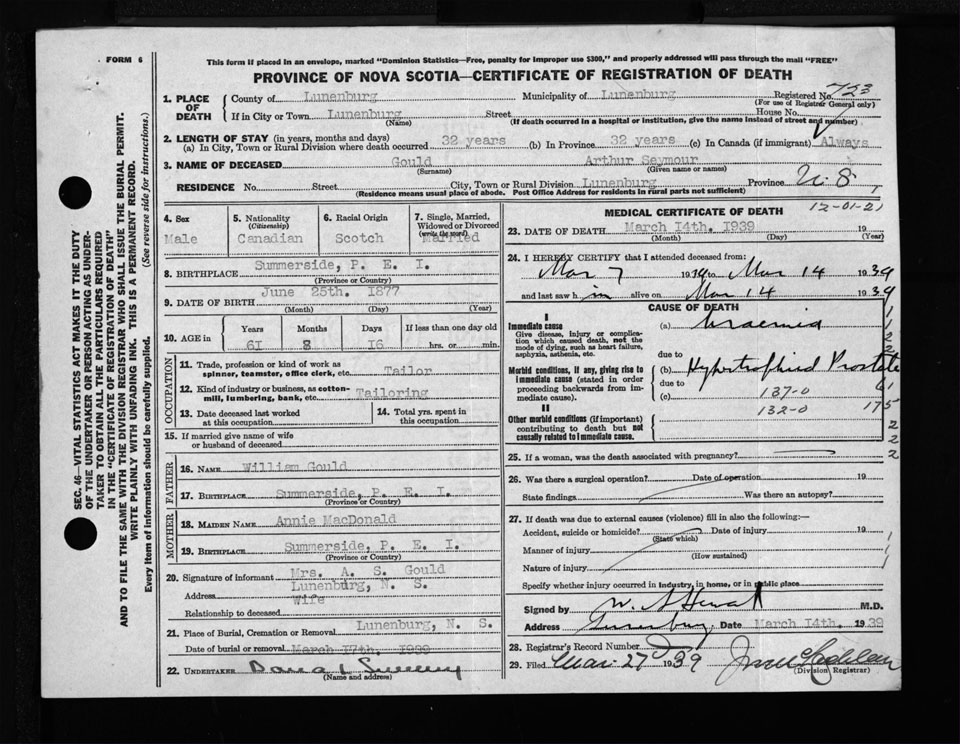 FORM 6
This form if placed in an envelope, marked "Dominion Statistics—Free, penalty for improper use $300," and properly addressed will pass through the mail "FREE"
PROVINCE OF NOVA SCOTIA—CERTIFICATE OF REGISTRATION OF DEATH
1. PLACE OF DEATH
County of Lunenburg Municipality of Lunenburg Registered No. 723
(For use of Registrar General only)
If in City or Town Lunenburg Street House No.
(Name) (If death occurred in a hospital or institution, give the name instead of street and number)
2. LENGTH OF STAY (in years, months and days)
(a) In City, Town or Rural Division where death occurred 32 years (b) In Province 32 years (c) In Canada (if immigrant) Always
3. NAME OF DECEASED Gould Arthur Seymour
(Surname) (Given name or names)
RESIDENCE No. Street City, Town or Rural Division Lunenburg Province N.S.
(Residence means usual place of abode. Post Office Address for residents in rural parts not sufficient)
4. Sex
Male
5. Nationality
(Citizenship)
Canadian
6. Racial Origin
Scotch
7. Single, Married, Widowed or Divorced
(write the word)
Married
8. BIRTHPLACE Summerside, P. E. I.
(Province or Country)
9. DATE OF BIRTH June 25th. 1877
(Month) (Day) (Year)
10. AGE in
Years Months Days If less than one day old
61 8 16 hrs. or min.
OCCUPATION
11. Trade, profession or kind of work as
spinner, teamster, office clerk, etc. Tailor
12. Kind of industry or business, as cotton-
mill, lumbering, bank, etc. Tailoring
13. Date deceased last worked
at this occupation
14. Total yrs. spent in
this occupation
15. If married give name of wife
or husband of deceased
FATHER
16. NAME William Gould
17. BIRTHPLACE Summerside, P. E. I.
(Province or Country)
MOTHER
18. MAIDEN NAME Annie MacDonald
19. BIRTHPLACE Summerside, P. E. I.
(Province or Country)
20. Signature of informant Mrs. A. S. Gould
Address Lunenburg, N. S.
Relationship to deceased Wife
21. Place of Burial, Cremation or Removal Lunenburg, N. S.
Date of burial or removal March 17th. 1939
22. UNDERTAKER
(Name and address)
MEDICAL CERTIFICATE OF DEATH
12-01-21
23. DATE OF DEATH March 14th. 1939 19
(Month) (Day) (Year)
24. I HEREBY CERTIFY that I attended deceased from:
Mar 7 1939 to Mar 14 1939
and last saw him alive on Mar 14 1939
CAUSE OF DEATH
I
Immediate cause
Give disease, injury or complica-
tion which caused death, not the
mode of dying, such as heart failure,
asphyxia, asthenia, etc.
(a) Uraemia
due to
Morbid conditions, if any, giving rise to
immediate cause (stated in order
proceeding backwards from im-
mediate cause).
(b) Hypertrophied Prostate
due to
(c) 137-0
II
132-0 175
Other morbid conditions (if important)
contributing to death but not
causally related to immediate cause.
25. If a woman, was the death associated with pregnancy?
26. Was there a surgical operation? Date of operation 19
State findings Was there an autopsy?
27. If death was due to external causes (violence) fill in also the following:—
Accident, suicide or homicide? Date of injury 19
(State which)
Manner of injury
(How sustained)
Nature of injury
Specify whether injury occurred in industry, in home, or in public place
Signed by M.D.
Address Lunenburg, Date March 14th. 1939
28. Registrar's Record Number
29. Filed Mar. 27 1939
(Division Registrar)
SEC. 46—VITAL STATISTICS ACT MAKES IT THE DUTY
OF THE UNDERTAKER OR PERSON ACTING AS UNDER-
TAKER TO OBTAIN ALL THE PARTICULARS REQUIRED
IN THE "CERTIFICATE OF REGISTRATION OF DEATH"
AND TO FILE THE SAME WITH THE DIVISION REGISTRAR WHO SHALL ISSUE THE BURIAL PERMIT.
WRITE PLAINLY WITH UNFADING INK. THIS IS A PERMANENT RECORD.
Every item of information should be carefully supplied. (See reverse side for instructions.)